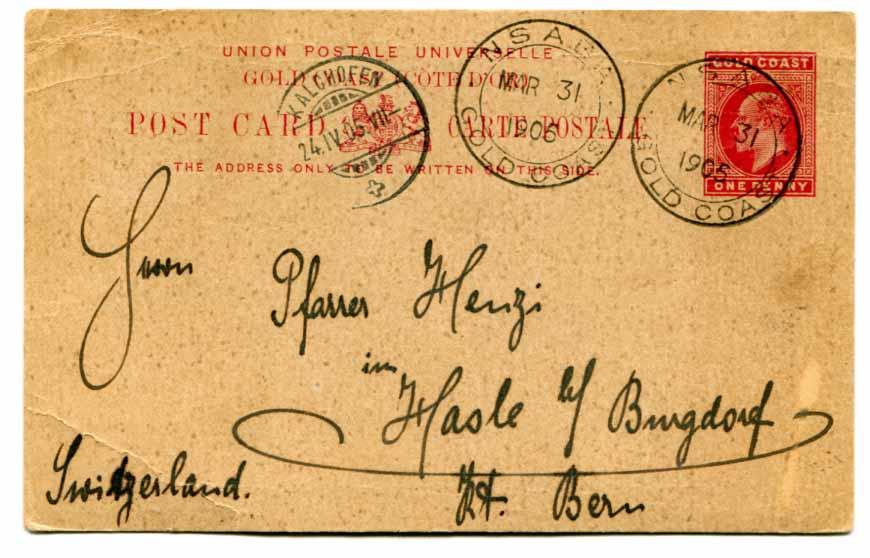 UNION POSTALE UNIVERSELLE
GOLD COAST (CÔTE D'OR)
POST CARD CARTE POSTALE
THE ADDRESS ONLY TO BE WRITTEN ON THIS SIDE.
KALCHOFEN
24.IV.05.VII-
NSABA
MAR 31
1905
GOLD COAST
GOLD COAST
ONE PENNY
NSABA
MAR 31
1905
GOLD COAST
Herrn
Pfarrer Henzi
in
Hasle b/ Burgdorf
Kt. Bern
Switzerland.